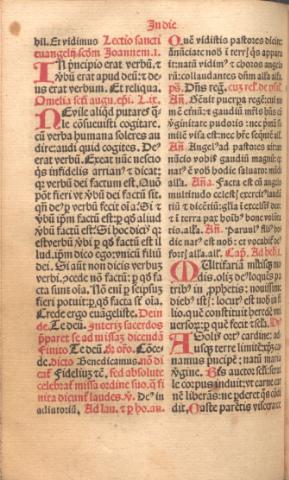 In die
bil. Et vidimus Lectio sancti
euangelij scd̄m Joannem. I.
IN pͥncipio erat verbū: ⁊
v̓bū erat apud deū: ⁊ de-
us erat verbum. Et reliqua.
Omelia scti augu. ep̄i. L. ix.
NE vile aliqd̓ putares qd̓
ne cōsueuisti cogitare.
cū verba humana soleres au
dire: audi quid cogites. De-
erat verbum. Exeat nūc nescio
qͥs infidelis arrian⁹ ⁊ dicat:
qꝛ verbū dei factum est. Quō
pōt fieri vt v̓bū dei factū sit:
qn̄ dēꝑ verbū fecit oīa: Si ⁊
v̓bū ip̄m factū est: ꝑ qd̓ aliud
v̓bū factū ē: Si hoc dicis qꝛ
est verbū v̓bi: ꝑ qd̓ factū est il
lud. ip̄m dico ego: vnicū filiū
dei. Si aūt non dicis verbuʒ
verbi, ꝯcede nō factū: ꝑ qd̓ fa
cta sunt oīa. Nō em̄ ꝑ seip̄suʒ
fieri potuit: ꝑ qd̓ facta sē oīa.
Crede ergo euangeliste. Dein
de. Te deū. Interiʒ sacerdos
p̄paret se ad missaʒ dicendā
Finito Te deū. Br̄ofo. Cōce-
de. dicto Benedicamus. nō di
cat Fideliuʒ tc̄. sed absolute
celebrat̓ missa ordine suo. q̄ fi
nita dicunt̓ laudes. v̓. De⁹ in
adiutoriū. Ad lau. ⁊ ꝑ ho. aū.
Quē vidistis pastores dicite:
ānūciate nob̓ī ter̄s qͥs appa
ruit: natū vidim⁹ ⁊ choros angelo
rū: collaudantes dn̄m alla. alla.
ps̄. Dn̄s reḡ.
Añ. Genuit puerpa regē: cui no
mē etnū: ⁊ gaudiū mr̄is hn̄s cū
v̓ginitate pudoris: nec pͥmā si-
milē visa est: nec hr̄e sequētē all̄a.
Añ. Angel⁹ ad pastores ait: an
nuncio vobis gaudiū magnū: qꝛ
nat⁹ ē vob̓ hodie saluator mūdi
alla. Añ. Facta est cū angelo
multitudo celest̓ exercit⁹ laudā
tiū ⁊ dicētiū: gl̓ia ī excelsis deo:
⁊ ī terra pax hoib̓ bone volūta
tis. alla. Añ. Paruul⁹ fili⁹ ho
die nat⁹ est nob̓: et vocabit̓ de⁹
fort̓ alla alla. Cap̄. Ad heb. i.
Multifariā multisqꝫ mo
dis, olim de⁹ loquēs pa
trib⁹ in ꝓphetis: nouissime
dieb⁹ ist̓: locut⁹ est nob̓ in fi-
lio, quē constituit heredē vni
uersoꝝ: ꝑ quē fecit ⁊ sc̄la.
A Solis ort⁹ cardine: ad
usqꝫ terre limitē: xp̄m ca
namus pͥncipē: natū maria
v̓gine. Btūs auctor scli: serui
le corpus induit: vt carne car
nē liberās: ne ꝑderet qͦs cōdi
dit. Caste parētis viscera: ce-